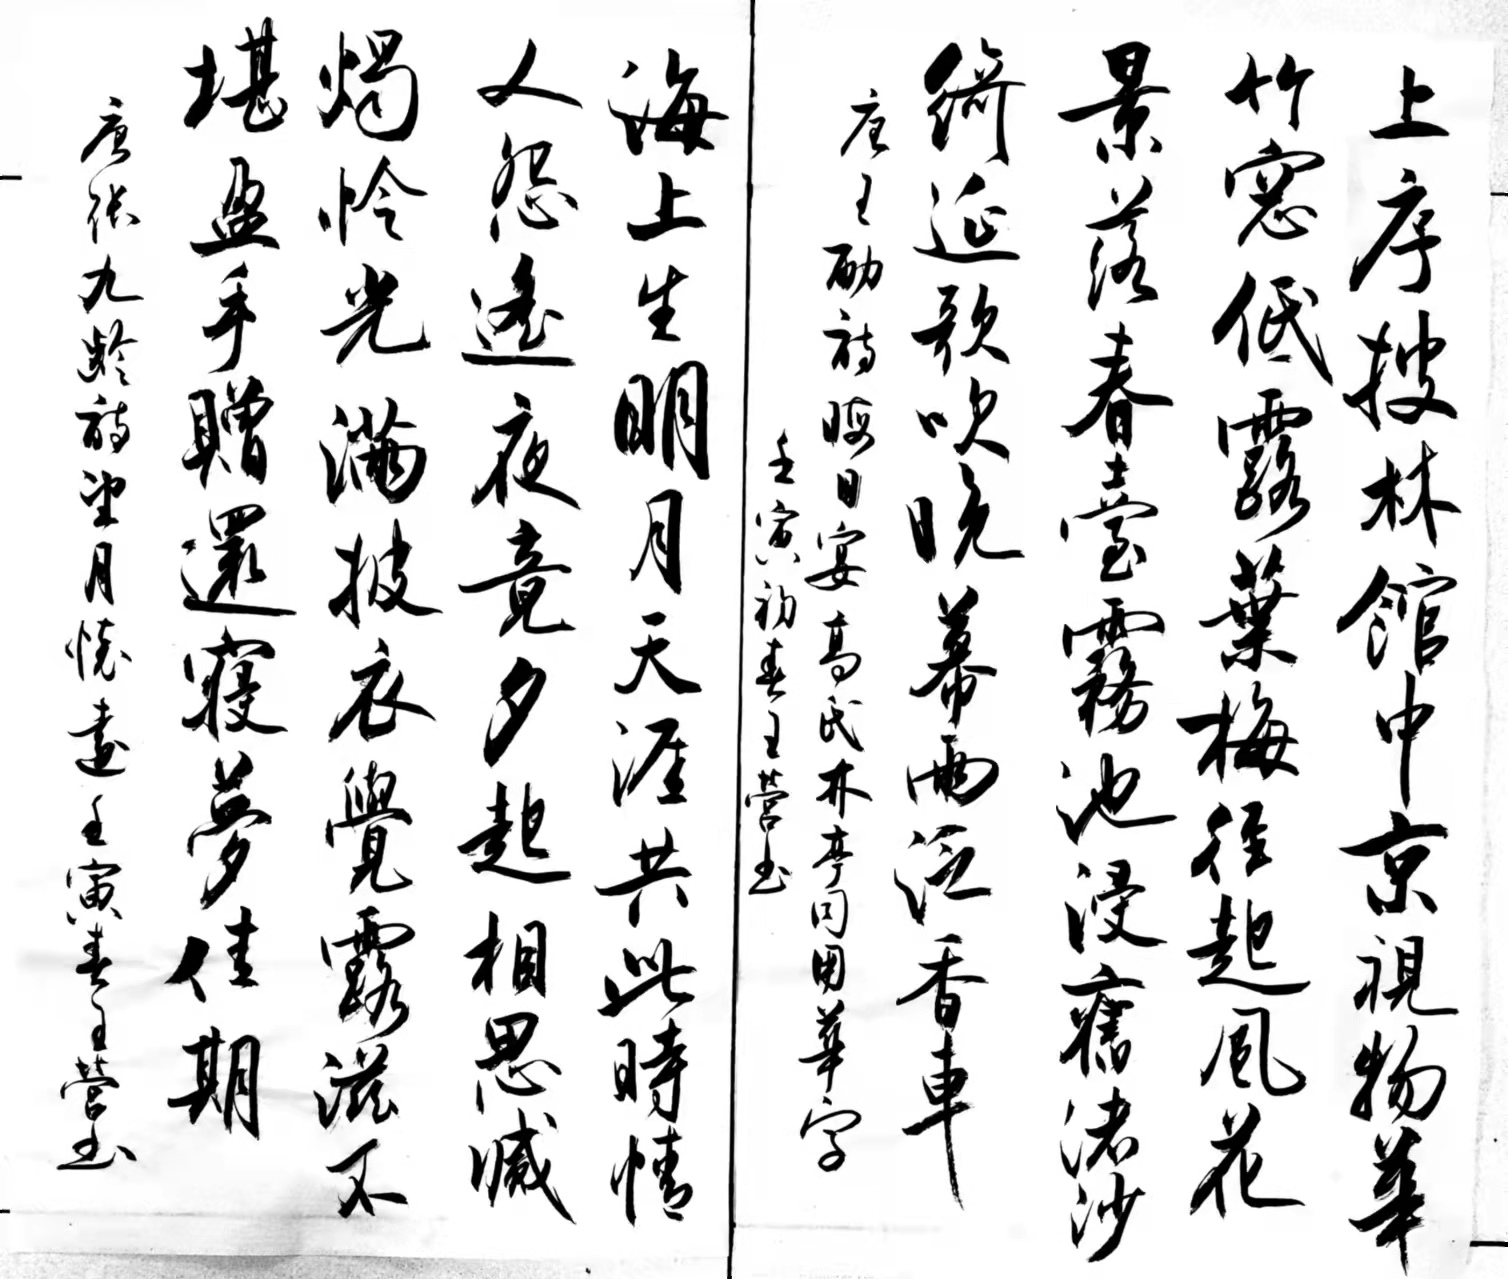 上序披林館中京視物華
竹窓低露葉梅徑起風花
景落春臺霧池浸舊渚沙
綺筵歌吹晚暮雨泛香車
唐王勔詩晦日宴高氏林亭同用華字
壬寅初春王營書
海上生明月天涯共此時情
人怨遙夜竟夕起相思滅
燭憐光滿披衣覺露滋不
堪盈手贈還寢夢佳期
唐張九齡詩望月懷遠壬寅春王營書